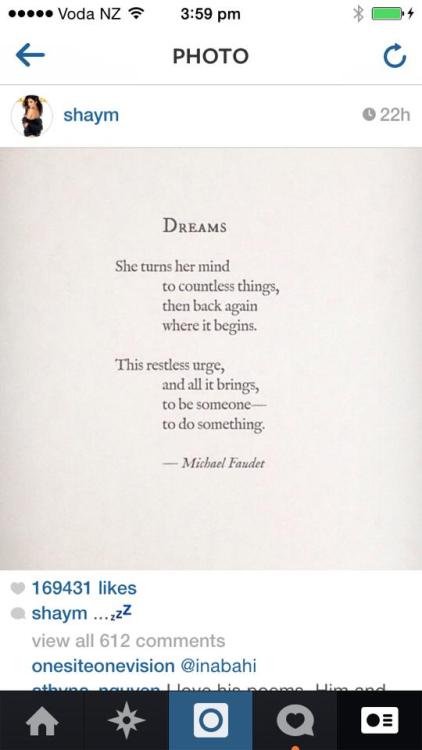 Voda NZ 3:59 pm
PHOTO
shaym 22h
DREAMS
She turns her mind
to countless things,
then back again
where it begins.
This restless urge,
and all it brings,
to be someone—
to do something.
— Michael Faudet
169431 likes
shaym ...zzZ
view all 612 comments
onesiteonevision @inabahi
athyna_nguyen I love his poems. Him and